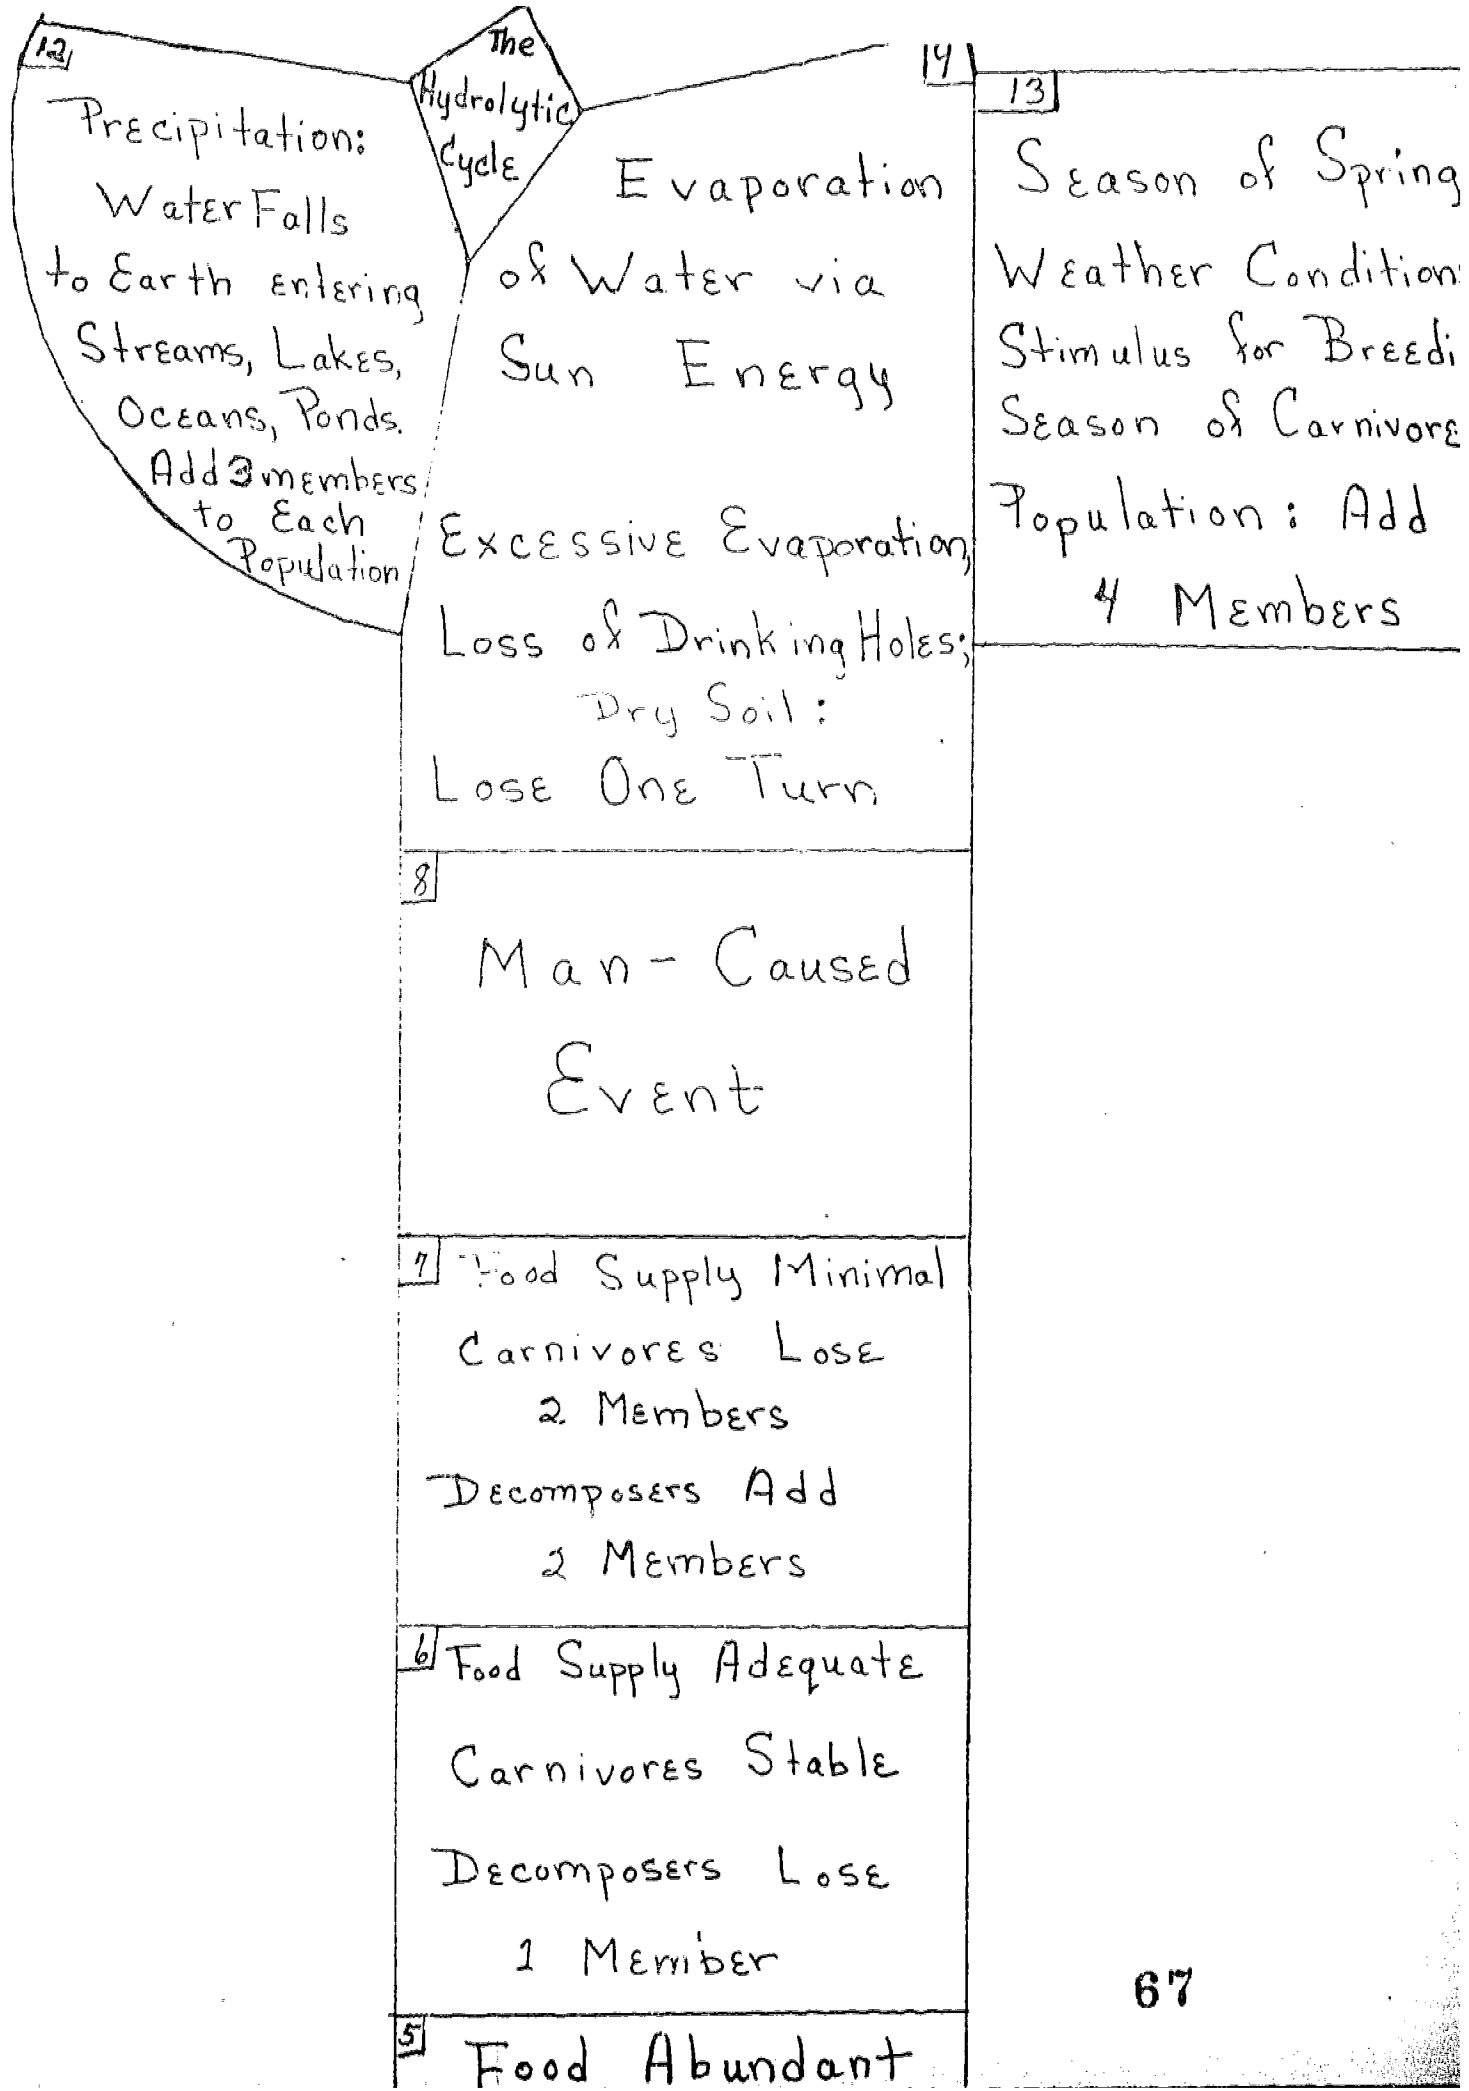 12
Precipitation:
Water Falls
to Earth entering
Streams, Lakes,
Oceans, Ponds.
Add 3 members
to Each
Population
The
Hydrolytic
Cycle
14
Evaporation
of Water via
Sun Energy
Excessive Evaporation,
Loss of Drinking Holes;
Dry Soil:
Lose One Turn
13
Season of Spring
Weather Condition
Stimulus for Breedi
Season of Carnivore
Population: Add
4 Members
8
Man-Caused
Event
7
Food Supply Minimal
Carnivores Lose
2 Members
Decomposers Add
2 Members
6
Food Supply Adequate
Carnivores Stable
Decomposers Lose
1 Member
5
Food Abundant
67